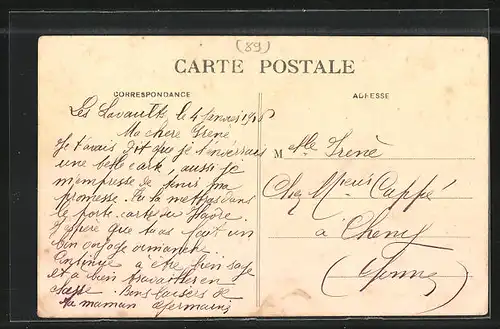 (89)
CARTE POSTALE
CORRESPONDANCE
ADRESSE
Les Lavaults, le 4
Ma chère Irène
Je t'avais dit que je t'enverrais
une belle carte, aussi je
m'empresse de tenir ma
promesse. Tu la mettras dans
le porte-carte du Havre.
J'espère que tu as fait un
bon voyage dimanche
Continue à être bien sage
et à bien travailler en
classe. Bons baisers de
ta maman Germaine
Melle Irène
Chez Mr Cappé
à Cheny
(Yonne)